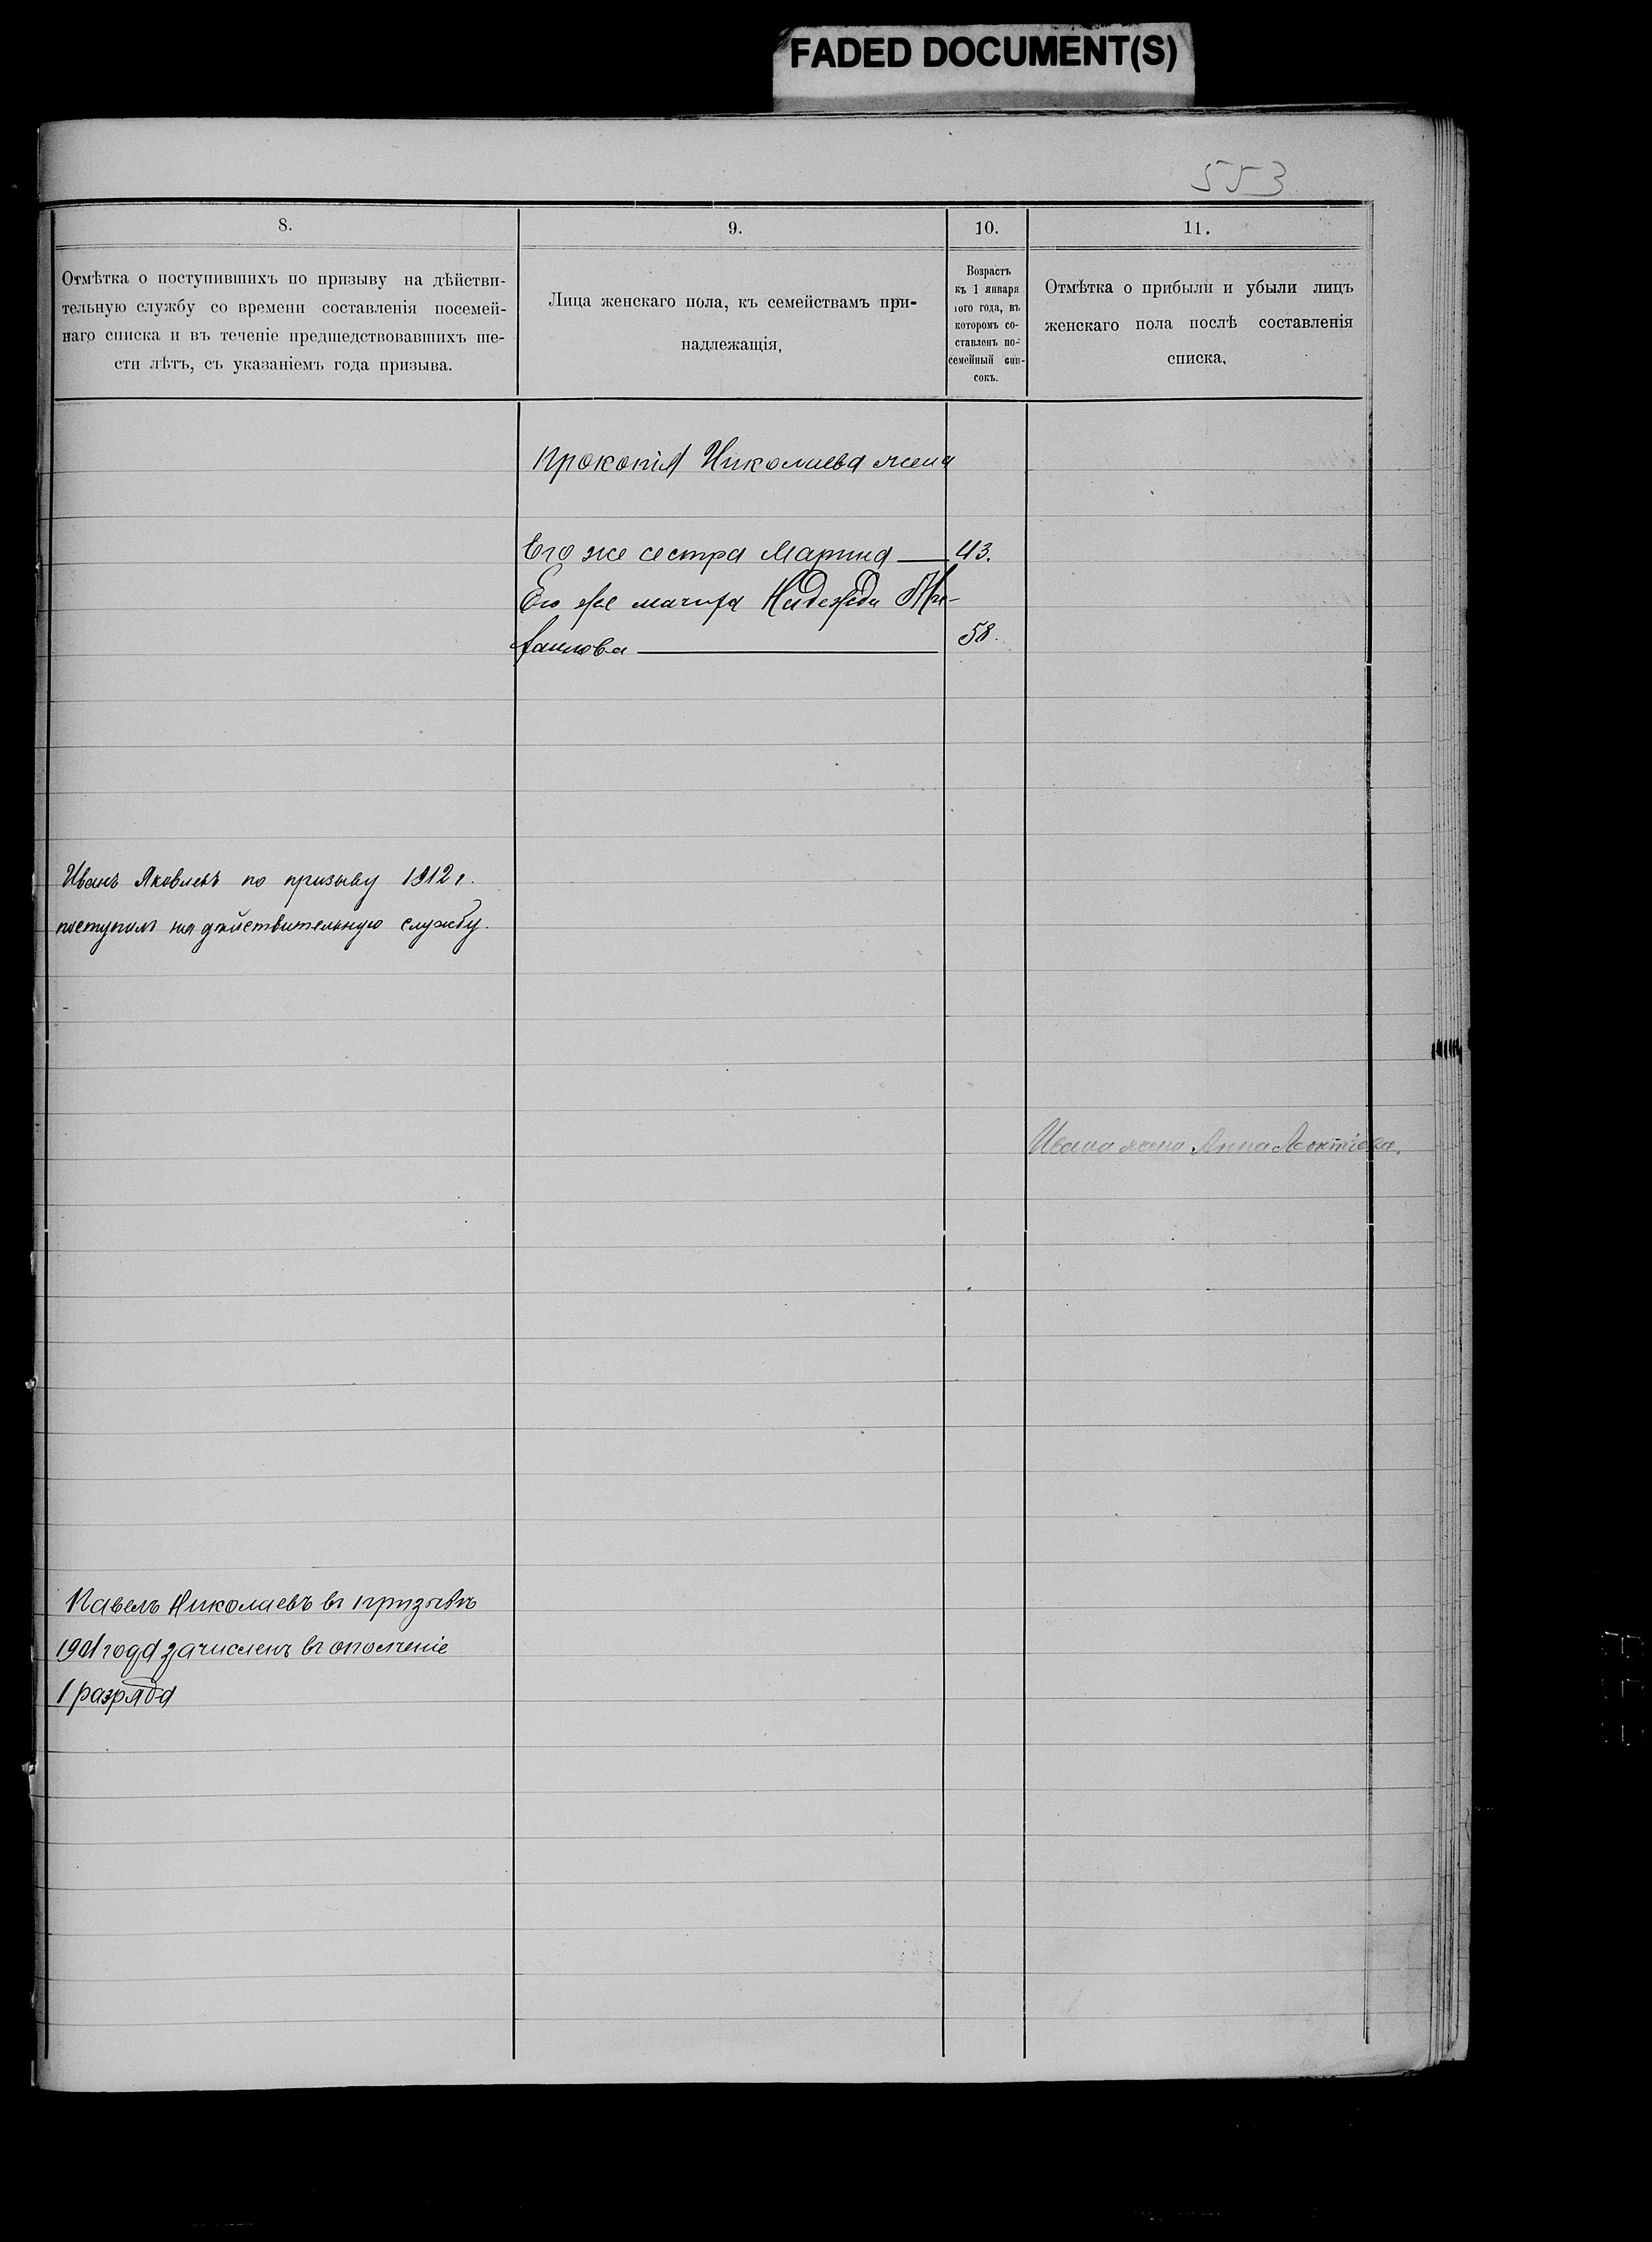 FADED DOCUMENT(S)
553
8.
9.
10.
11.
Отмѣтка о поступившихъ по призыву на дѣйстви-
тельную службу со времени составленія посемей-
наго списка и въ теченіе предшедствовавшихъ ше-
сти лѣтъ, съ указаніемъ года призыва.
Лица женскаго пола, къ семействамъ при-
надлежащія,
Возрастъ
къ 1 января
того года, въ
которомъ со-
ставленъ по-
семейный спи-
сокъ.
Отмѣтка о прибыли и убыли лицъ
женскаго пола послѣ составленія
списка,
Прокопія Николаева жена
Его же сестра Марина — 43.
Его же мачиха Надежда Ми-
хаилова — 58.
Иванъ Яковлевъ по призыву 1912 г.
поступилъ на дѣйствительную службу.
Ивана жена Анна Леонтіева.
Павелъ Николаевъ въ призывъ
1901 года зачисленъ въ ополченіе
1 разряда